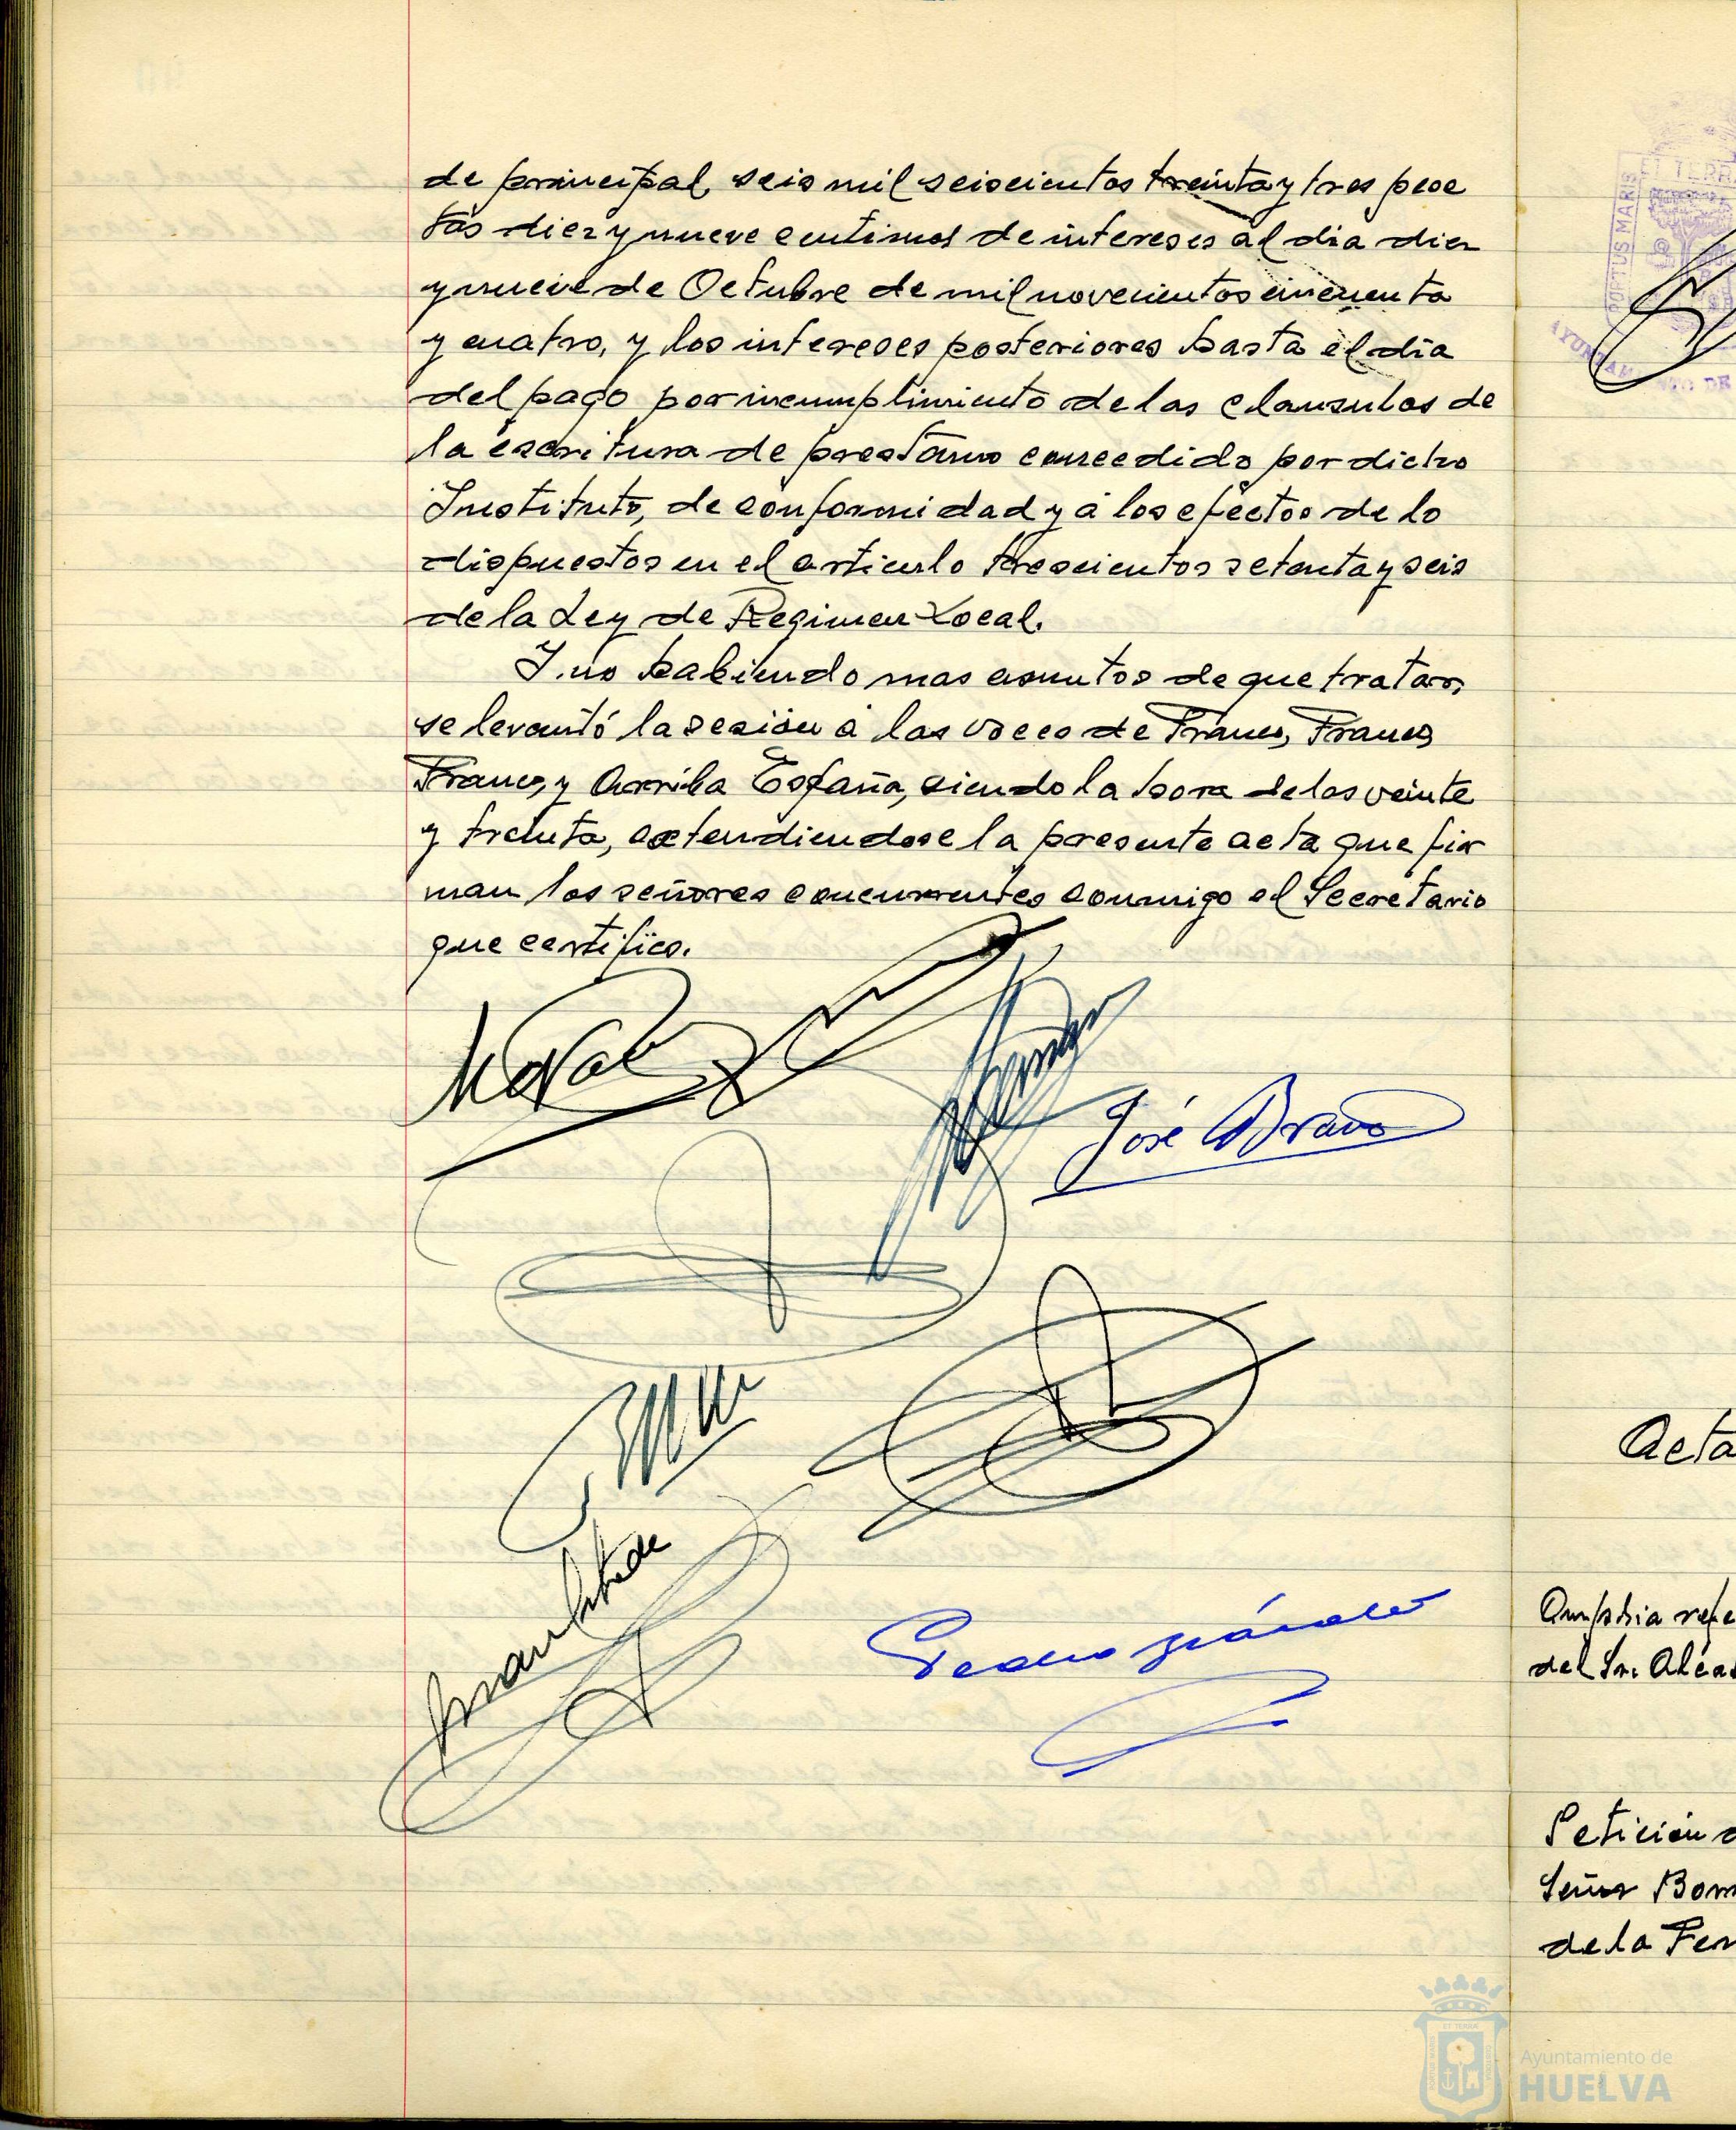 de principal, seis mil seiscientos treinta y tres pese
tas diez y nueve centimos de intereses al dia diez
y nueve de Octubre de mil novecientos cincuenta
y cuatro, y los intereses posteriores hasta el dia
del pago por incumplimiento de las clausulas de
la escritura de prestamo concedido por dicho
Instituto, de conformidad y a los efectos de lo
dispuestos en el articulo trescientos setenta y seis
de la Ley de Regimen Local.
Y no habiendo mas asuntos de que tratar,
se levantó la sesión a las voces de Franco, Franco,
Franco, y Arriba España, siendo la hora de las veinte
y treinta, extendiendose la presente acta que fir
man los señores concurrentes conmigo el Secretario
que certifico.
José Bravo
Pedro
ET TERR
PORTUS MARIS
AYUNTAMIENTO DE
Acta
Amplia refe
del Sr. Alcal
Petición d
Señor Bor
de la Fer
Ayuntamiento de
HUELVA